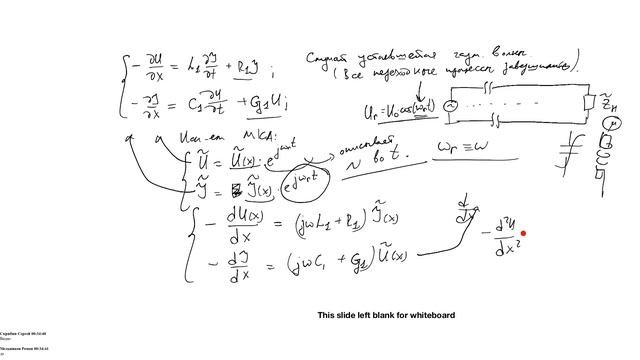 - ∂U/∂x = L₁ ∂J/∂t + R₁J ;
- ∂J/∂x = C₁ ∂U/∂t + G₁U ;
Случай установившейся гарм. волны
(Все переходные процессы завершились).
Uг = U₀ cos(ωг t)
Z̃н
МКА:
Ũ = Ũ(x) · e^{jωг t}
J̃ = J̃(x) · e^{jωг t}
описывает
~ во t.
ωг ≡ ω
- dU(x)/dx = (jωL₁ + R₁) J̃(x)
- dJ/dx = (jωC₁ + G₁) Ũ(x)
d/dx
- d²U/dx²
This slide left blank for whiteboard